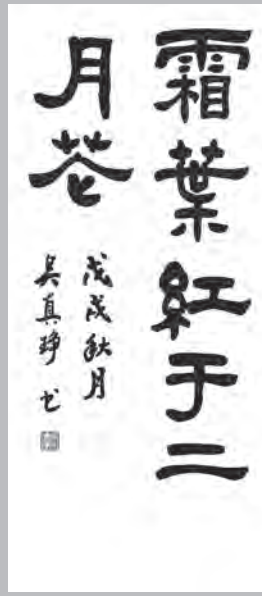 霜葉紅于二
月花
戊戌秋月
吴真琤书